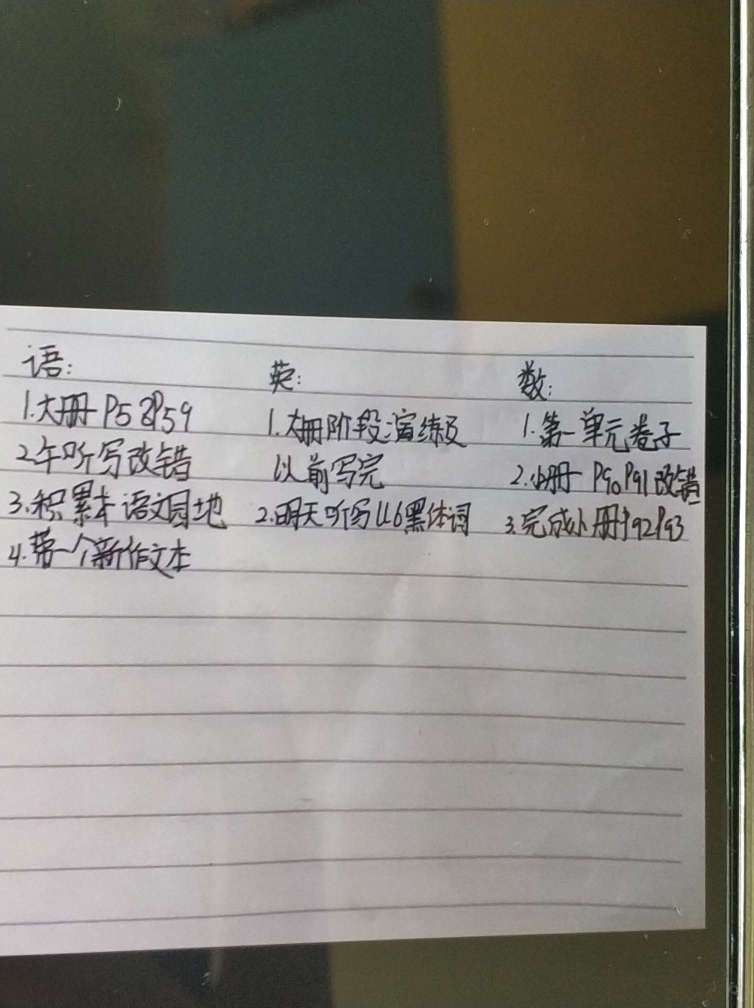 语:
1.大册P58P59
2.午听写改错
3.积累本语文园地
4.带一个新作文本
英:
1.大册阶段演练及
以前写完
2.明天听写U6黑体词
数:
1.第一单元卷子
2.小册 P90P91改错
3.完成小册P92P93